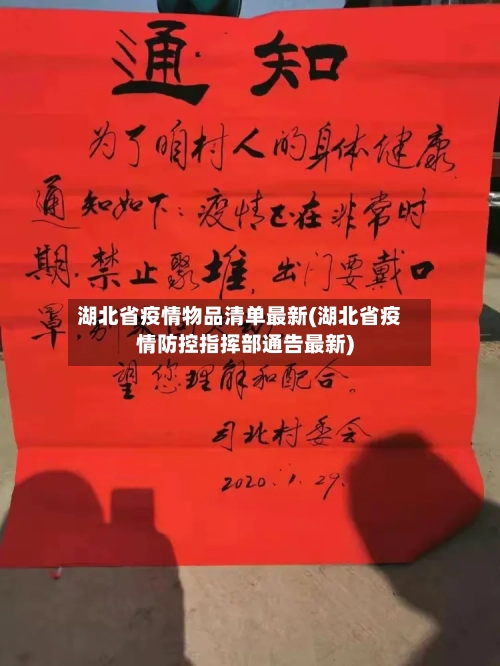 通知
为了咱村人的身体健康.
通知如下:疫情已在非常时
期.禁止聚堆,出门要戴口
罩,别
湖北省疫情物品清单最新(湖北省疫
情防控指挥部通告最新)
望您理解和配合。
司北村委会
2020.1.29.